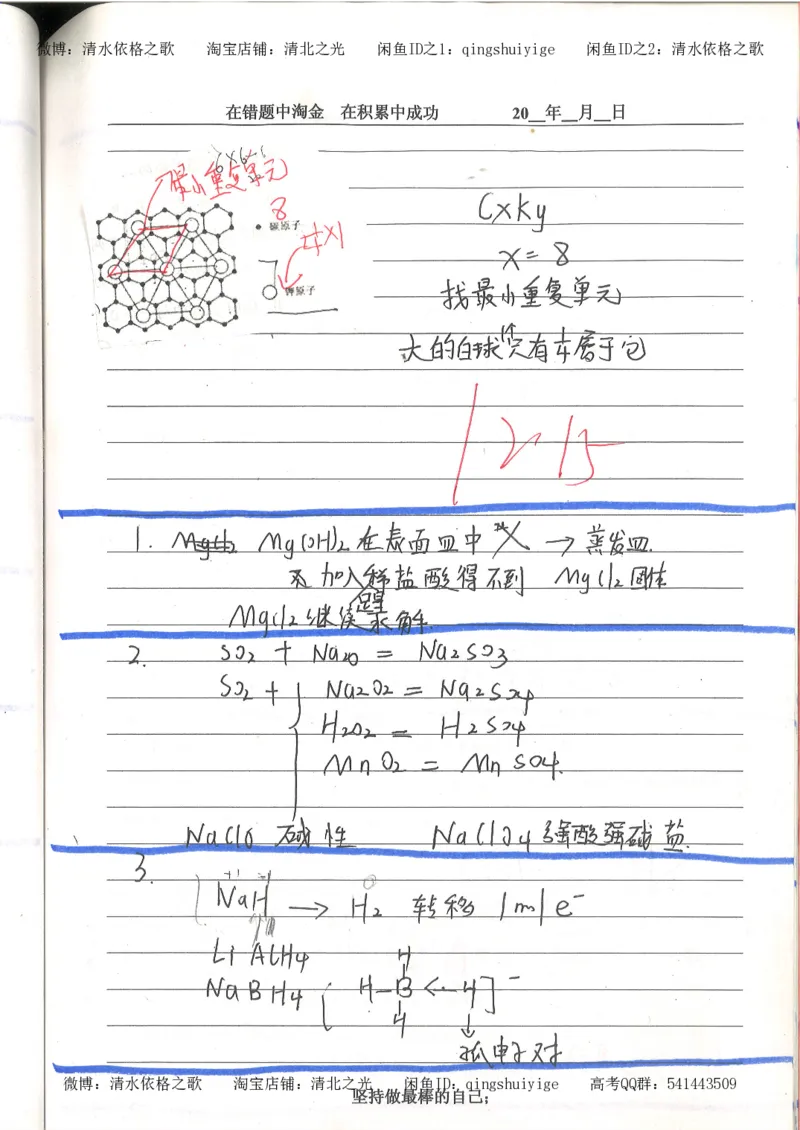 微博：清水依格之歌 淘宝店铺：清北之光 闲鱼ID之1：qingshuiyige 闲鱼ID之2：清水依格之歌
在错题中淘金 在积累中成功 20__年__月__日
最小重复单元
8
碳原子
钾原子
CxKy
x = 8
找最小重复单元
大的白球只有 属于它
12.15
1. Mg(OH)2 在表面皿中 → 蒸发皿.
加入稀盐酸得不到 MgCl2固体
足量
MgCl2继续水解.
2. SO2 + Na2O = Na2SO3
SO2 + Na2O2 = Na2SO4
H2O2 = H2SO4
MnO2 = MnSO4.
NaClO 碱性 NaClO4 强酸强碱盐.
3.
+1 -1 0
NaH → H2 转移 1mol e-
LiAlH4
NaBH4
H
H—B ← H]-
H
孤电子对
微博：清水依格之歌 淘宝店铺：清北之光 闲鱼ID：qingshuiyige 高考QQ群：541443509
坚持做最棒的自己；